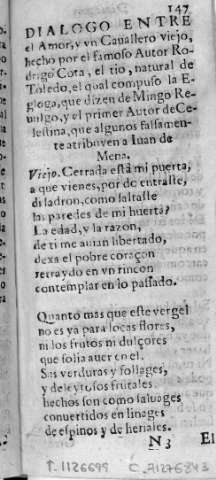 147
DIALOGO ENTRE
el Amor, y vn Cauallero viejo,
hecho por el famoso Autor Ro-
drigo Cota, el tio, natural de
Toledo, el qual compuso la E-
gloga, que dizen de Mingo Re-
uulgo, y el primer Autor de Ce-
lestina, que algunos falsamen-
te atribuyen a Iuan de
Mena.
Viejo. Cerrada està mi puerta,
a que vienes, por dò entraste,
di ladron, como saltaste
las paredes de mi huerta?
La edad, y la razon,
de ti me auian libertado,
dexa el pobre coraçon
retraydo en vn rincon
contemplar en lo passado.
Quanto mas que este vergel
no es ya para locas flores,
ni los frutos ni dulçores
que solia auer en el.
Sus verduras y follages,
y deleytosos frutales
hechos son como saluages
conuertidos en linages
de espinos y de heriales.
N 3 El
T. 1126699 C. 71276843